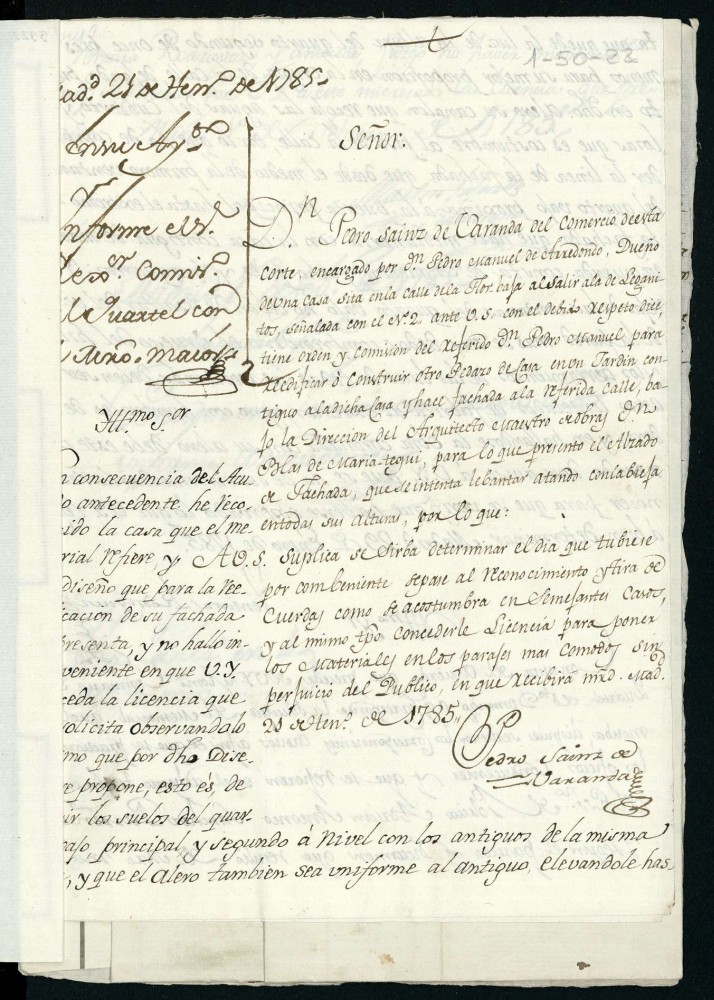 1-50-23
ad.ᵈ 21 de Hen.º de 1785.
Informe el S.ʳ
or Comis.º
Quartel con
Mro. maior
Yllmo Sor
consecuencia del Acu
o antecedente he reco
ido la casa que el me-
rial refiere y
diseño que para la ree-
icacion de su fachada
resenta, y no hallo in-
veniente en que V.Y.
ceda la licencia que
olicita observandolo
mo que por dho Dise-
e propone, esto és, de
ir los suelos del quar-
ajo principal y segundo á nivel con los antiguos de la misma
, y que el Alero tambien sea uniforme al antiguo, elevandole has
Señor.
D.ⁿ Pedro Sainz de Varanda del Comercio de esta
Corte, encargado por Dⁿ Pedro Manuel de Arredondo, Dueño
de una Casa sita en la calle de la Flor baja al salir a la de Legani
tos, señalada con el N.º 2. ante V.S. con el debido respeto dice,
tiene orden y comision del referido Dⁿ Pedro Manuel para
redificar ò Construir otro Pedazo de Casa en un Jardin con-
tiguo a la dicha Casa y hace fachada a la referida calle, ba-
jo la Direccion del Arquitecto Maestro de obras Dⁿ
Blas de Mariategui, para lo que presento el Alzado
de Fachada, que se intenta lebantar atando con la bieja
en todas sus Alturas, por lo que:
A V.S. Suplica se sirba determinar el dia que tubiese
por combeniente se pase al reconocimiento y tira de
Cuerdas como se acostumbra en Semejantes Casos,
y al mismo tpo Concederle Licencia para poner
los Materiales en los parajes mas Comodos sin
perjuicio del Publico, en que recibirá mrd. Mad.ᵈ
21 de Hen.º de 1785.
Pedro Sainz de
Varanda